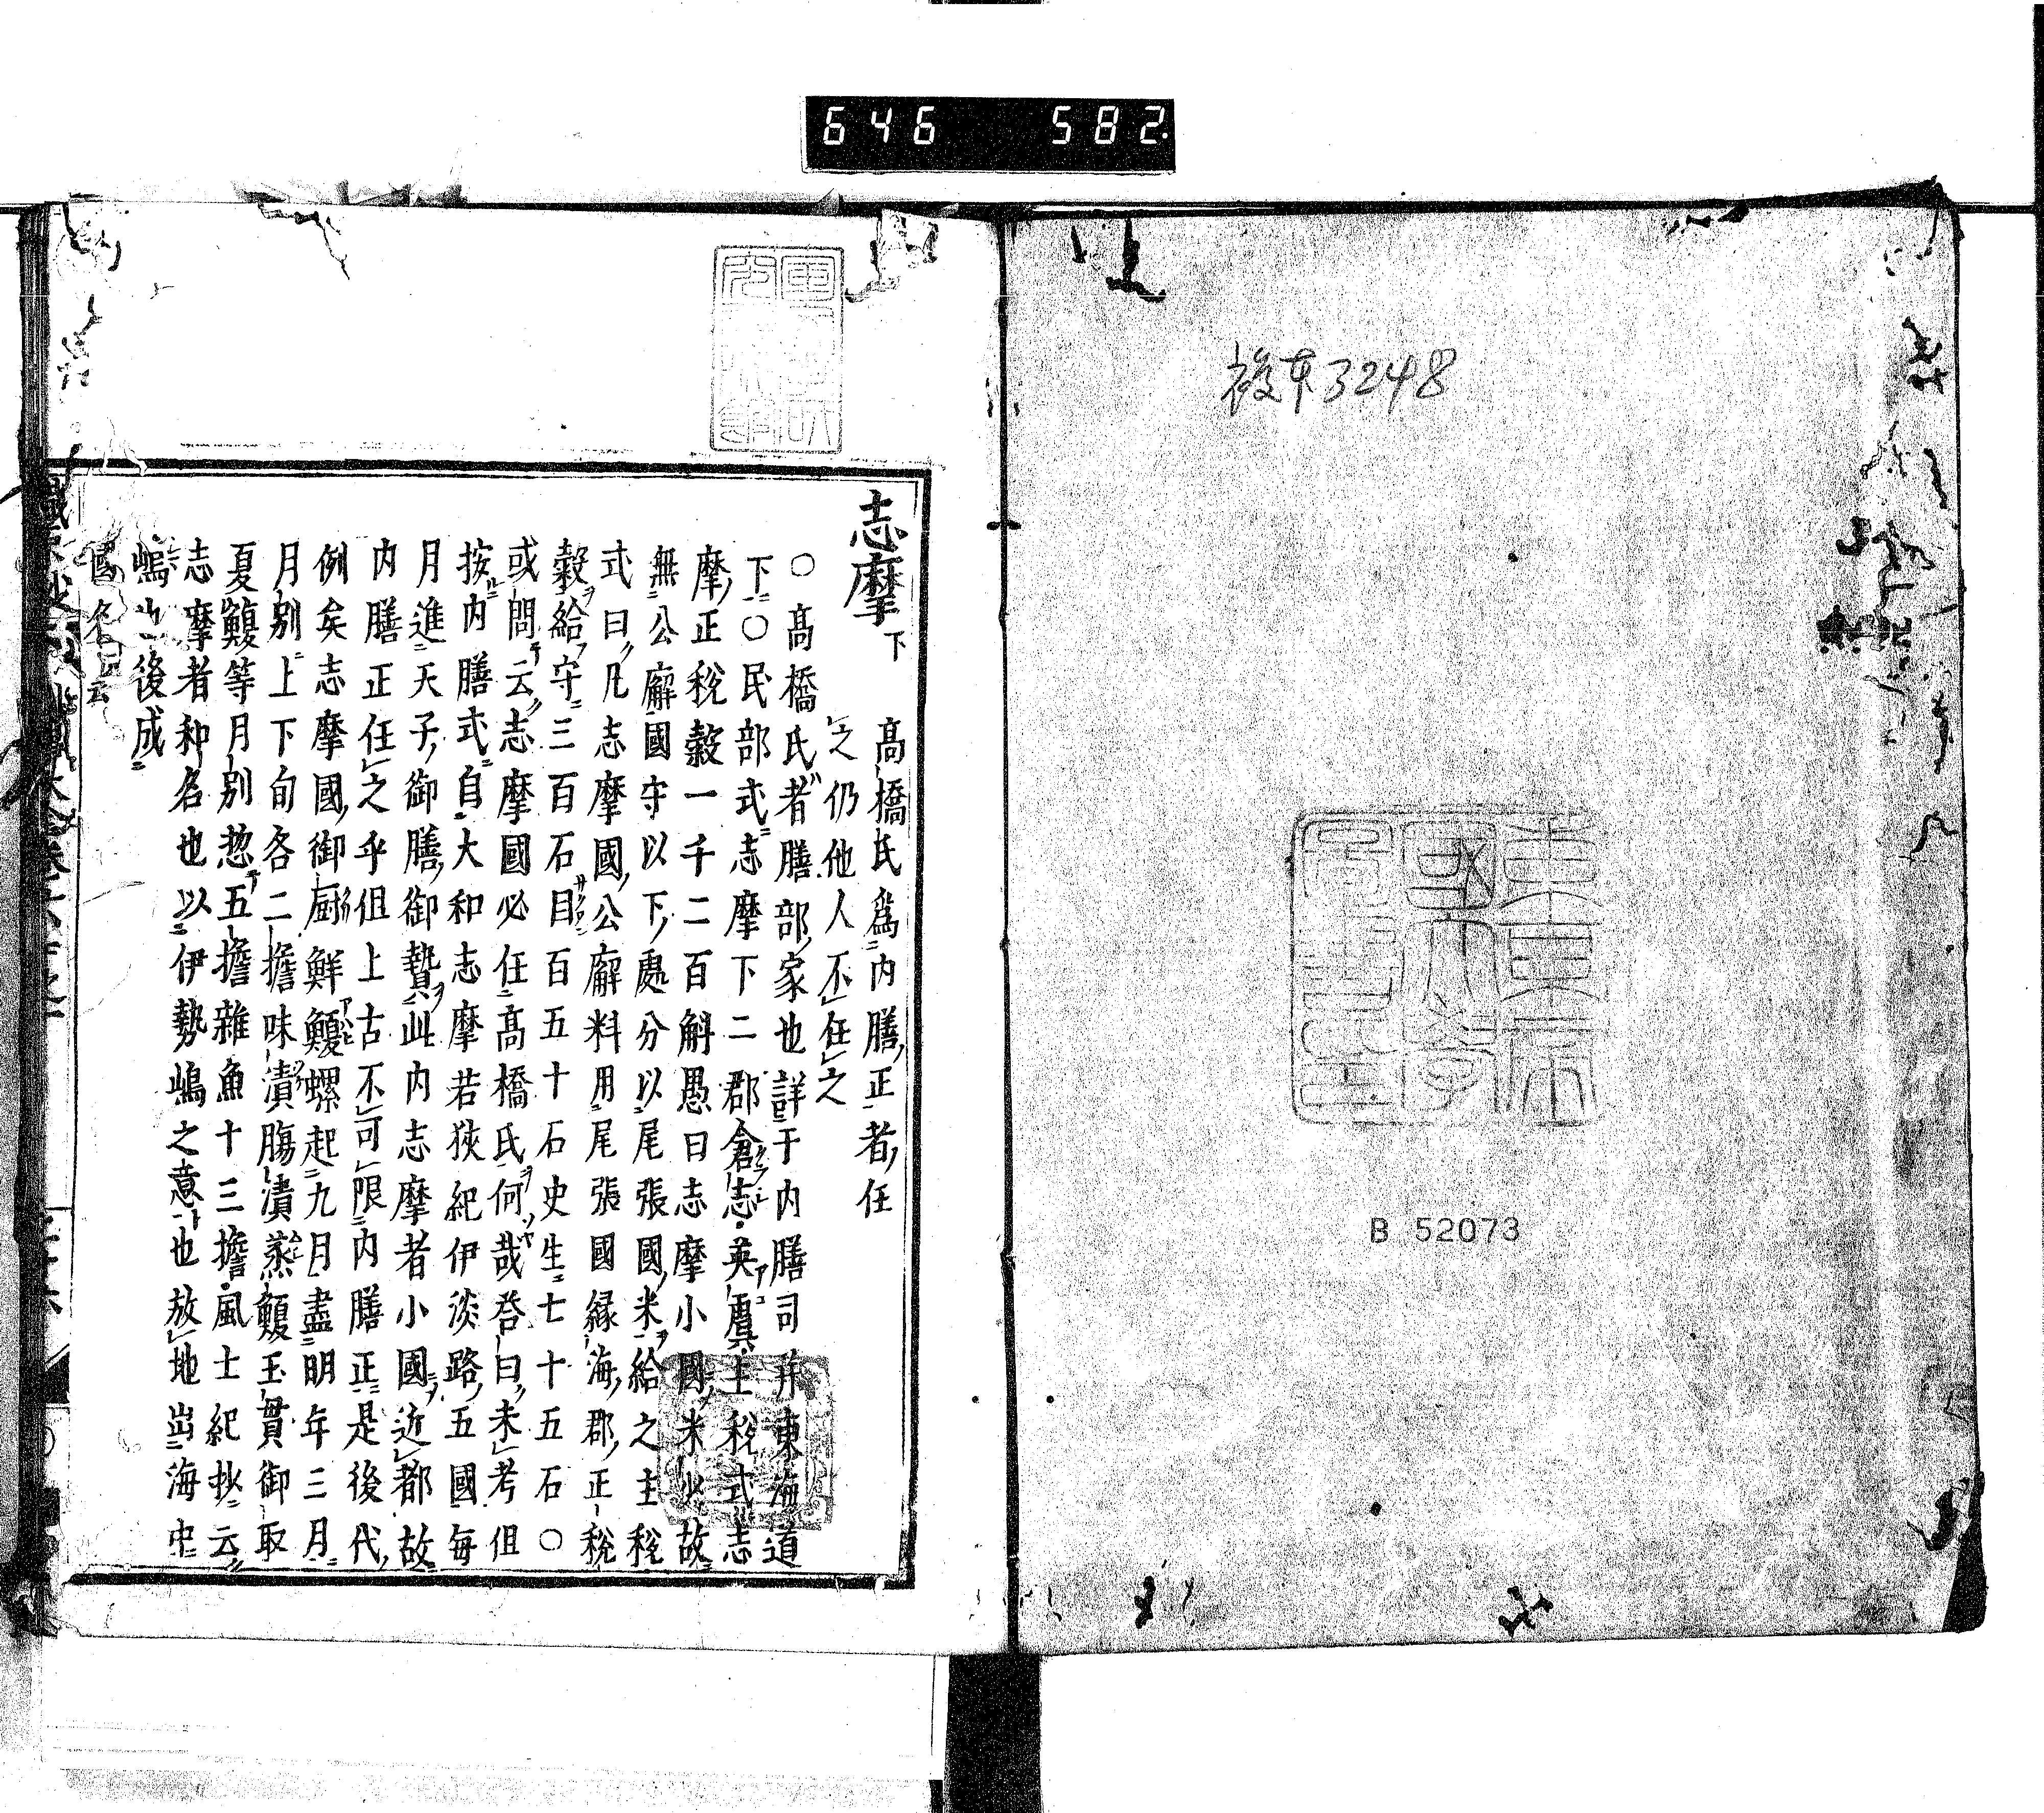 646 582
複本3248
B 52073
志摩下
高橋氏爲内膳正者任
之仍他人不任之
○高橋氏者膳部家也詳于内膳司并東海道
下○民部式志摩下二郡倉志英虞主税式志
摩正税穀一千二百斛愚曰志摩小國米少故
無公廨國守以下處分以尾張國米給之主税
式曰凡志摩國公廨料用尾張國縁海郡正税
穀給守三百石目百五十石史生七十五石○
或問云志摩國必任高橋氏何哉答曰未考但
按内膳式自大和志摩若狹紀伊淡路五國毎
月進天子御膳御贄此内志摩者小國近都故
内膳正任之乎但上古不可限内膳正是後代
例矣志摩國御厨鮮鰒螺起九月盡明年三月
月別上下旬各二擔味漬膓漬蒸鰒玉貫御取
夏鰒等月別惣五擔雜魚十三擔風土紀抄云
志摩者和名也以伊勢嶋之意也放地出海中
嶋也後成
國名云